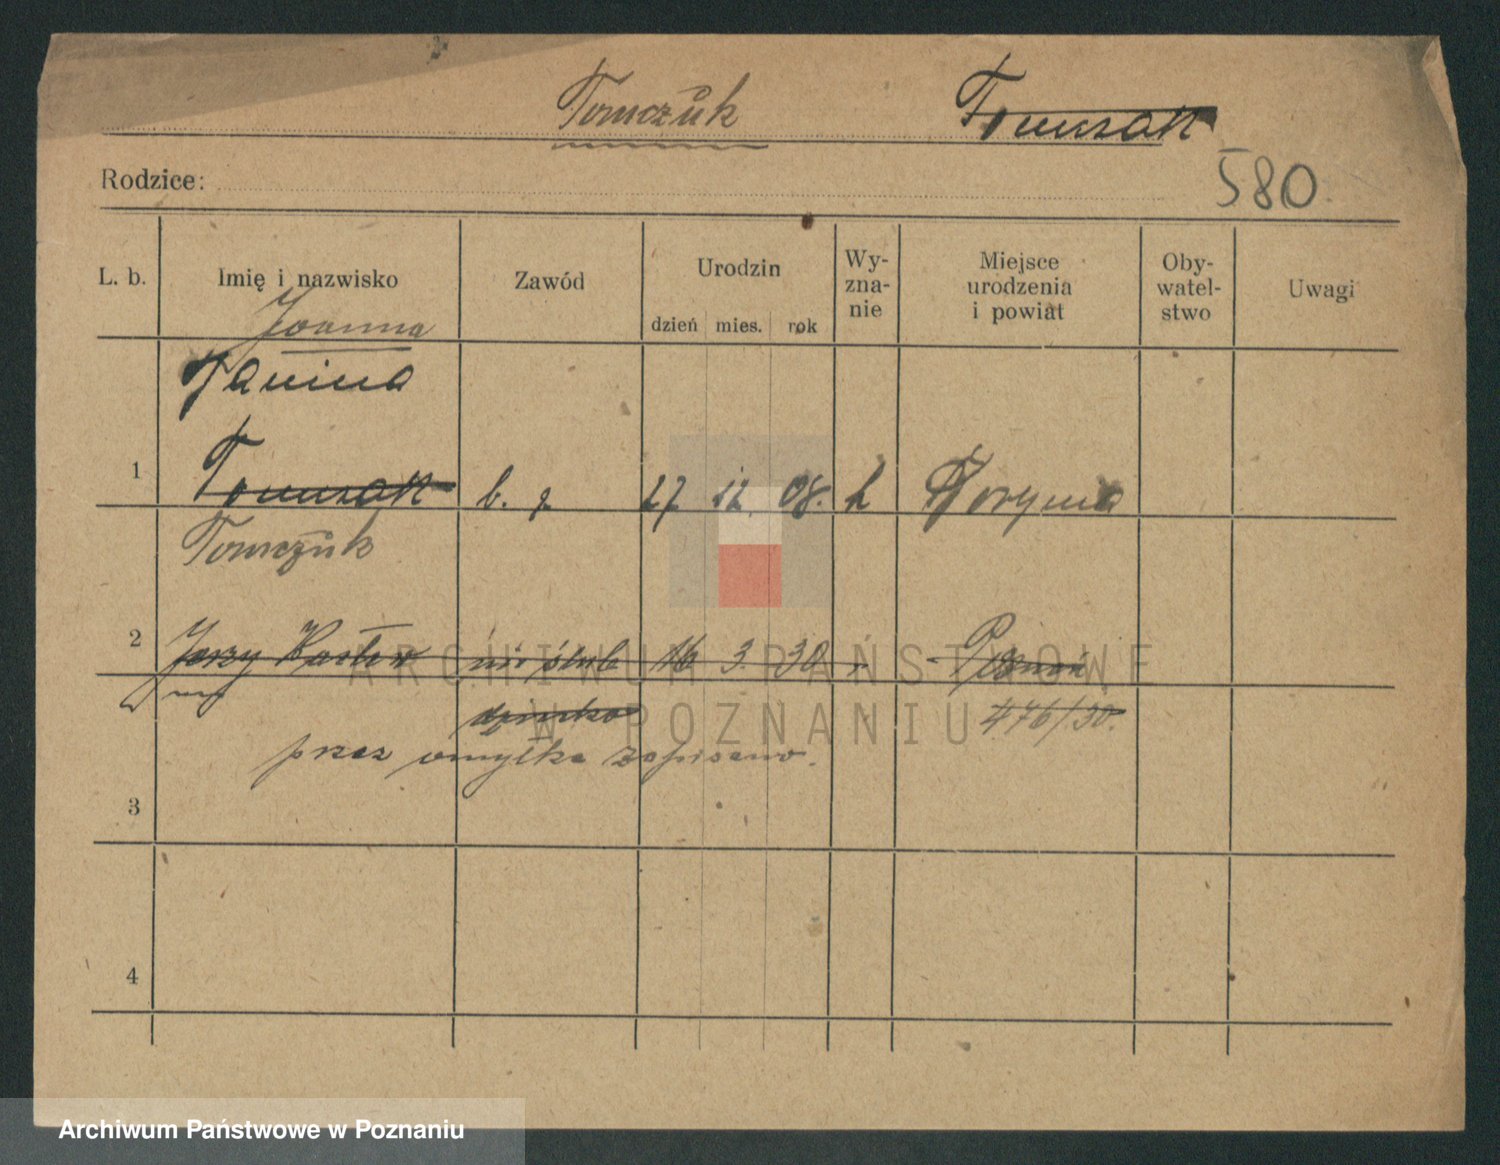 Tomczuk Tomczak
580
Rodzice:
L. b. Imię i nazwisko Zawód Urodzin Wy- Miejsce Oby- Uwagi
zna- urodzenia watel-
dzień mies. rok nie i powiat stwo
Joanna
Janina
1 Tomczak b. z. 27 12. 08. k
Tomczuk
2 Jerzy Wacław nieślub 16 3. 30
dziecko 476/30.
przez omyłkę zapisano.
3
4
ARCHIWUM PAŃSTWOWE
W POZNANIU
Archiwum Państwowe w Poznaniu